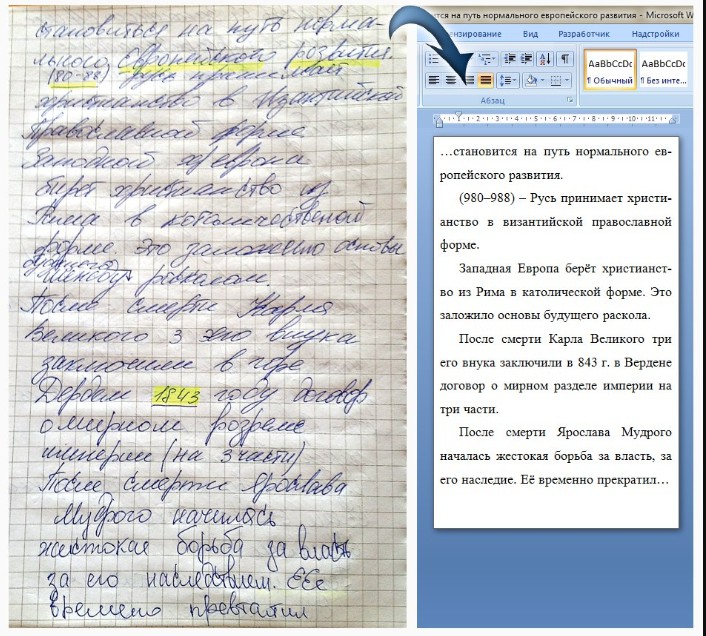 становиться на путь норма-
льного европейского развития.
(980-988) Русь принимает
християнство в Византийской
Православной форме
Западной Европа
берёт християнство из
Рима в католичественой
форме. Это заложено основы
расколам.
После смерти Карла
Великого 3 его внука
заключили в горе
Вердем 1843 году договор
о мирном розделе
империи (на 3 части)
После смерти Ярослава
Мудрого началась
жестокая борьба за власть
за его наследством. ЕЕе
времено превтатил
становится на путь нормального европейского развития - Microsoft W
Вид Разработчик Надстройки
Абзац
AaBbCcDc AaBbCcDc
¶ Обычный ¶ Без инте...
1 2 3 4 5 6 7 8 9 10 11
…становится на путь нормального ев-
ропейского развития.
(980–988) – Русь принимает христи-
анство в византийской православной
форме.
Западная Европа берёт христианст-
во из Рима в католической форме. Это
заложило основы будущего раскола.
После смерти Карла Великого три
его внука заключили в 843 г. в Вердене
договор о мирном разделе империи на
три части.
После смерти Ярослава Мудрого
началась жестокая борьба за власть, за
его наследие. Её временно прекратил…